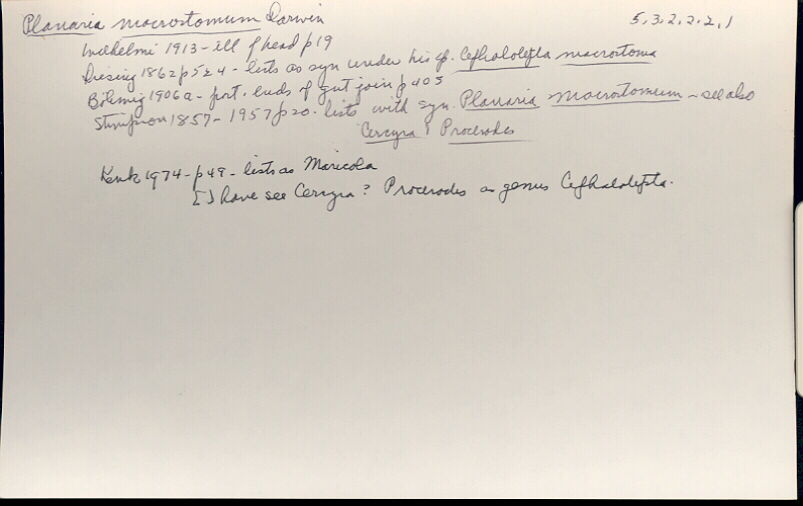 Planaria macrostomum Darwin 5.3.2.2.2.1
Wilhelmi 1913 - ill of head p19
Diesing 1862 p 524 - lists as syn under his sp. Cephalolepta macrostoma
Böhmig 1906a - post. ends of gut join p 403
Stimpson 1857 - 1957 p 20. lists with syn. Planaria macrostomum - see also
Cercyra ? Procerodes
Kenk 1974 - p 49 - lists as Maricola
[I have see Cercyra ? Procerodes as genus Cephalolepta.